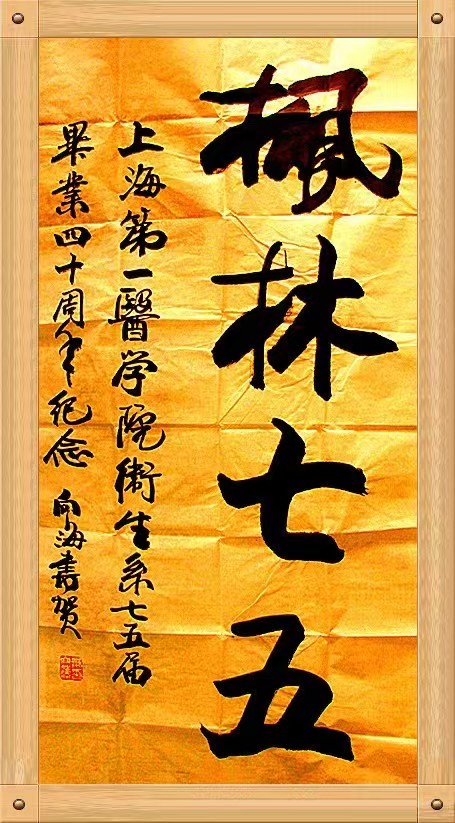 枫林七五
上海第一醫学院衛生系七五届
畢業四十周年纪念 向海書贺